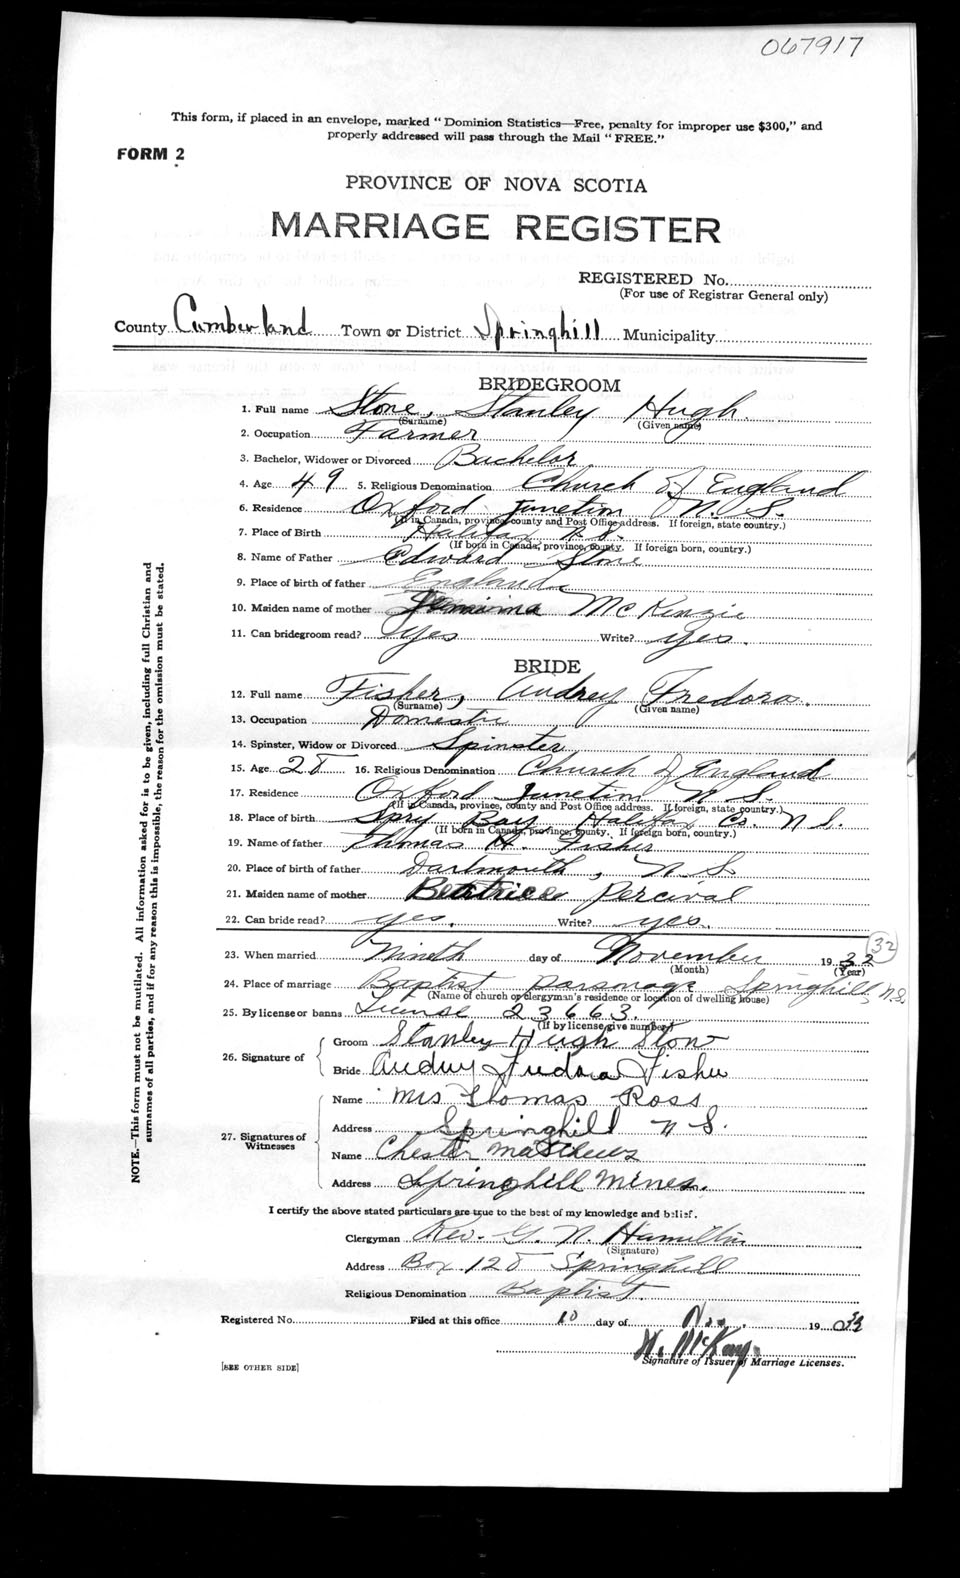 067917
This form, if placed in an envelope, marked "Dominion Statistics—Free, penalty for improper use $300," and
properly addressed will pass through the Mail "FREE."
FORM 2
PROVINCE OF NOVA SCOTIA
MARRIAGE REGISTER
REGISTERED No.
(For use of Registrar General only)
County Cumberland Town or District Springhill Municipality
BRIDEGROOM
1. Full name Stone, Stanley Hugh
(Surname) (Given name)
2. Occupation Farmer
3. Bachelor, Widower or Divorced Bachelor
4. Age 49 5. Religious Denomination Church of England
6. Residence Oxford Junction N.S.
(If in Canada, province, county and Post Office address. If foreign, state country.)
7. Place of Birth Halifax N.S.
(If born in Canada, province, county. If foreign born, country.)
8. Name of Father Edward Stone
9. Place of birth of father England
10. Maiden name of mother Jemima McKenzie
11. Can bridegroom read? yes Write? yes.
BRIDE
12. Full name Fisher, Audrey Fredora.
(Surname) (Given name)
13. Occupation Domestic
14. Spinster, Widow or Divorced Spinster
15. Age 28 16. Religious Denomination Church of England
17. Residence Oxford Junction N.S.
(If in Canada, province, county and Post Office address. If foreign, state country.)
18. Place of birth Spry Bay Halifax Co. N.S.
(If born in Canada, province, county. If foreign born, country.)
19. Name of father Thomas H. Fisher
20. Place of birth of father Dartmouth, N.S.
21. Maiden name of mother Beatrice Percival
22. Can bride read? yes. Write? yes.
32
23. When married Ninth day of November 1932
(Month) (Year)
24. Place of marriage Baptist Parsonage Springhill, N.S.
(Name of church or clergyman's residence or location of dwelling house)
25. By license or banns License 23663.
(If by license give number)
26. Signature of
Groom Stanley Hugh Stone
Bride Audrey Fredora Fisher
27. Signatures of Witnesses
Name Mrs Thomas Ross
Address Springhill N S.
Name Chester Matthews
Address Springhill Mines.
I certify the above stated particulars are true to the best of my knowledge and belief.
Clergyman Rev. G. N. Hamilton
(Signature)
Address Box 128 Springhill
Religious Denomination Baptist.
Registered No. Filed at this office 10 day of Nov. 19 32
W. McKay
Signature of Issuer of Marriage Licenses.
[SEE OTHER SIDE]
NOTE.—This form must not be mutilated. All information asked for is to be given, including full Christian and
surnames of all parties, and if for any reason this is impossible, the reason for the omission must be stated.